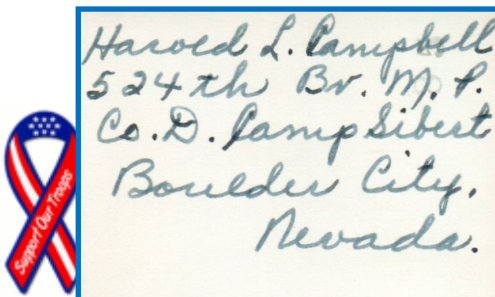 Harold L. Campbell
524th Bn. M. P.
Co. D. Camp Sibert
Boulder City,
Nevada.
Support Our Troops